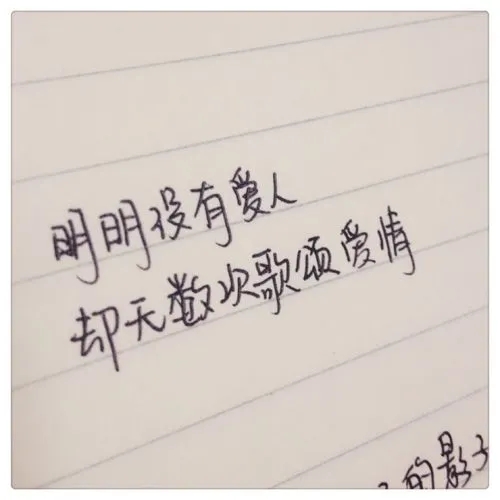 明明没有爱人
却无数次歌颂爱情
的影子